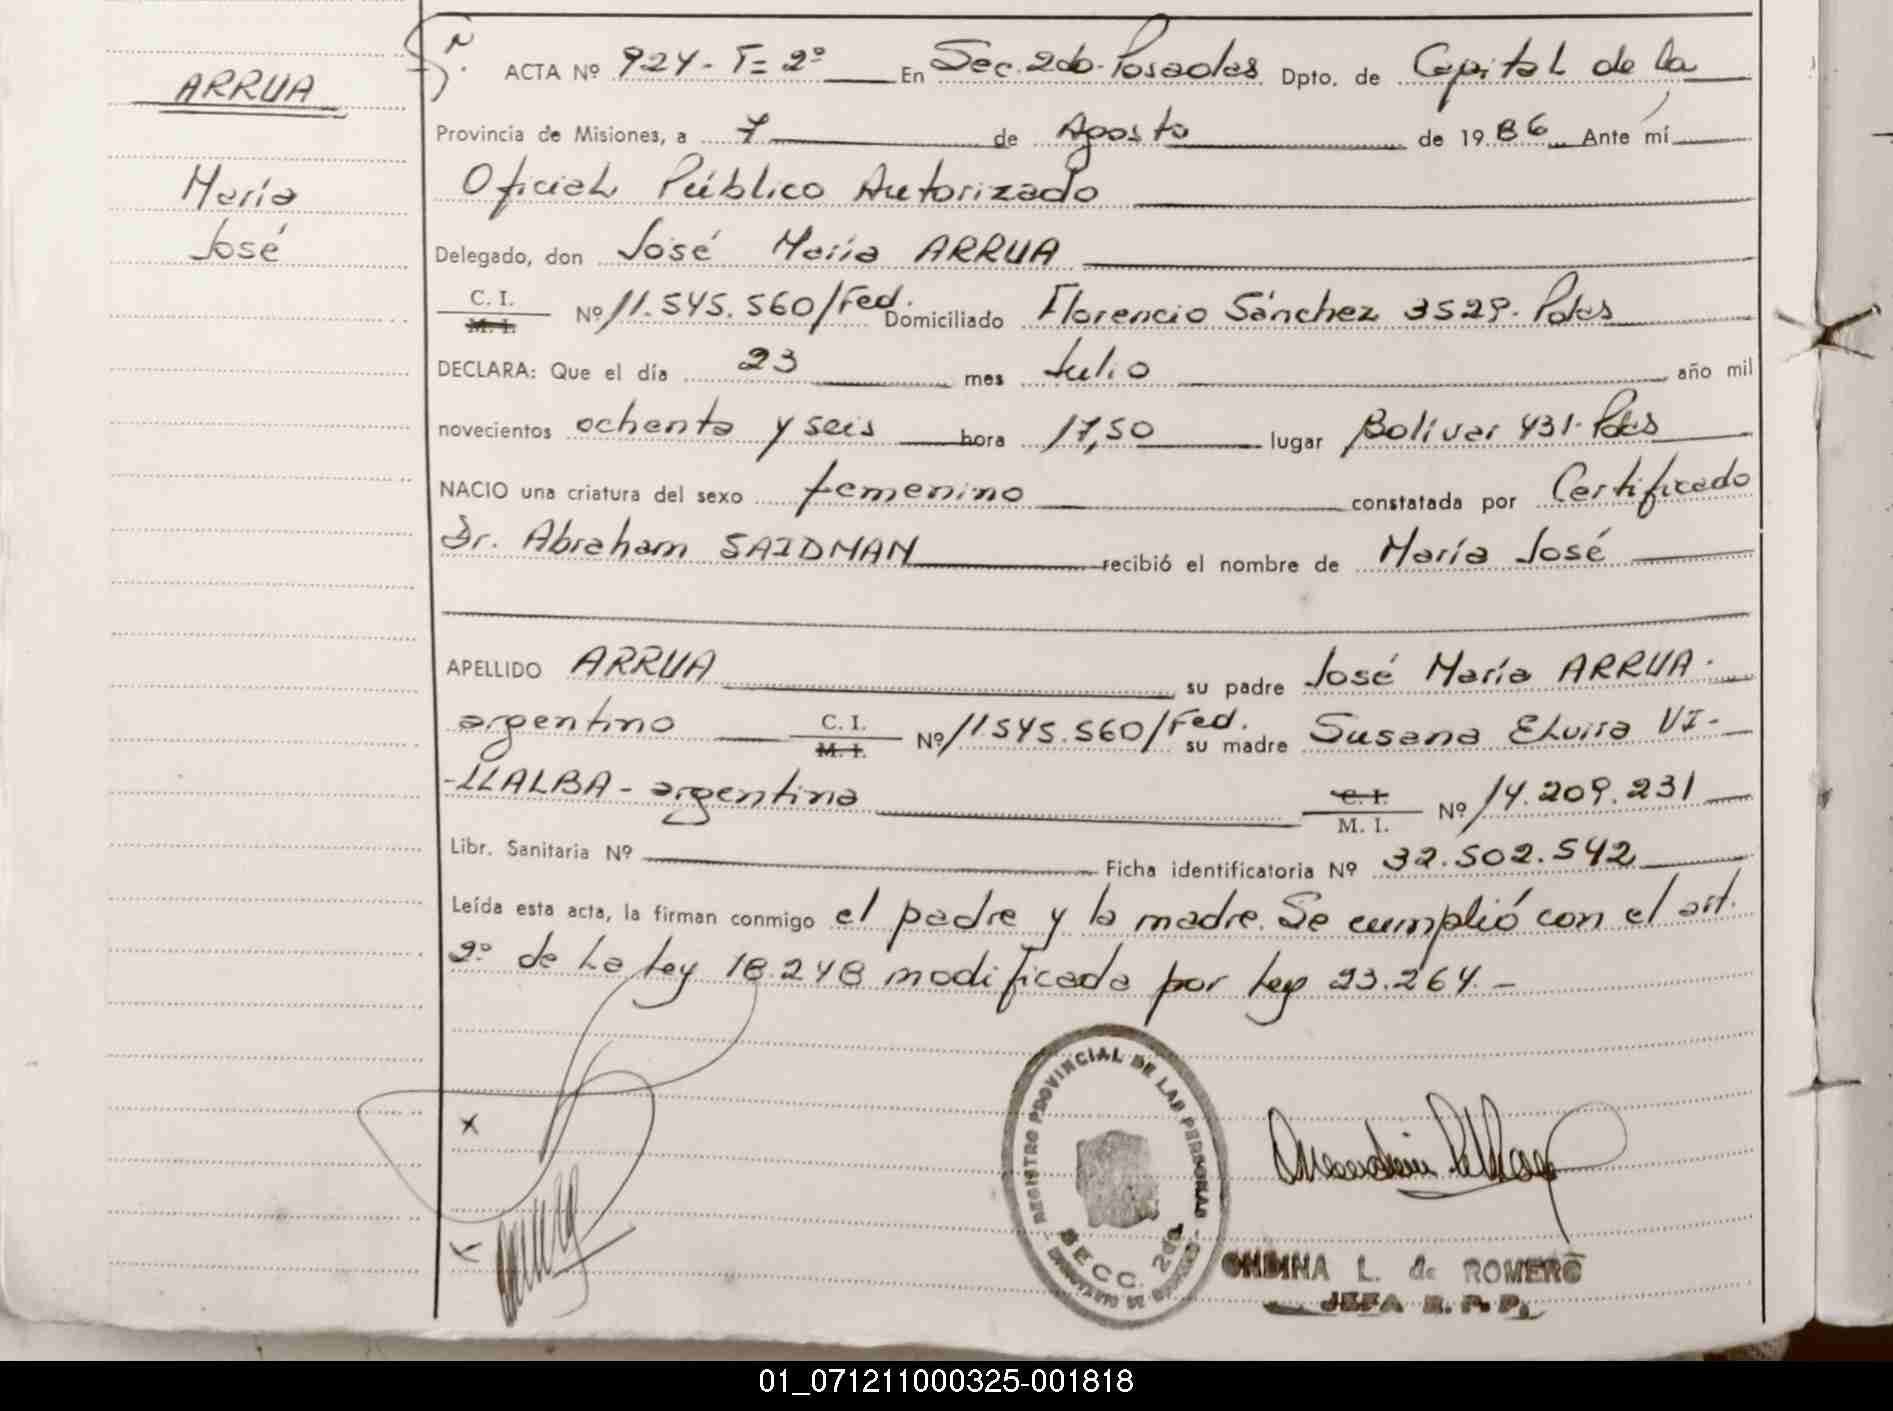 ARRUA
María
José
ACTA Nº 924- T= 2º En Sec. 2do. Posadas Dpto. de Capital de la
Provincia de Misiones, a 7 de Agosto de 1986 Ante mí
Oficial Público Autorizado
Delegado, don José María ARRUA
C. I. M. I. Nº 11.545.560/Fed. Domiciliado Florencio Sánchez 3529. Pdas
DECLARA: Que el día 23 mes Julio año mil
novecientos ochenta y seis hora 17,50 lugar Bolívar 431. Pdas
NACIO una criatura del sexo femenino constatada por Certificado
Dr. Abraham SAIDMAN recibió el nombre de María José
APELLIDO ARRUA su padre José María ARRUA.
argentino C. I. M. I. Nº 11.545.560/Fed. su madre Susana Elvira VI-
-LLALBA - argentina C. I. M. I. Nº 14.209.231
Libr. Sanitaria Nº Ficha identificatoria Nº 32.502.542
Leída esta acta, la firman conmigo el padre y la madre. Se cumplió con el art.
2º de la ley 18.248 modificada por ley 23.264. -
REGISTRO PROVINCIAL DE LAS PERSONAS
SECC. 2da.
ONDINA L. de ROMERO
JEFA R. P. P.
01_071211000325-001818